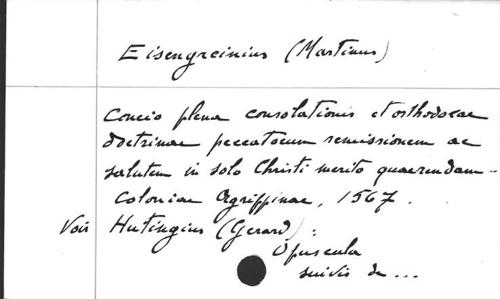 Eisengreinius (Martinus)
Concio plena consolationis et orthodoxae
doctrinae peccatorum remissionem ac
salutem in solo Christi merito quaerendam -
Coloniae Agrippinae, 1567.
Voir Hutingius (Gerard) :
Opuscula
suivis de ...